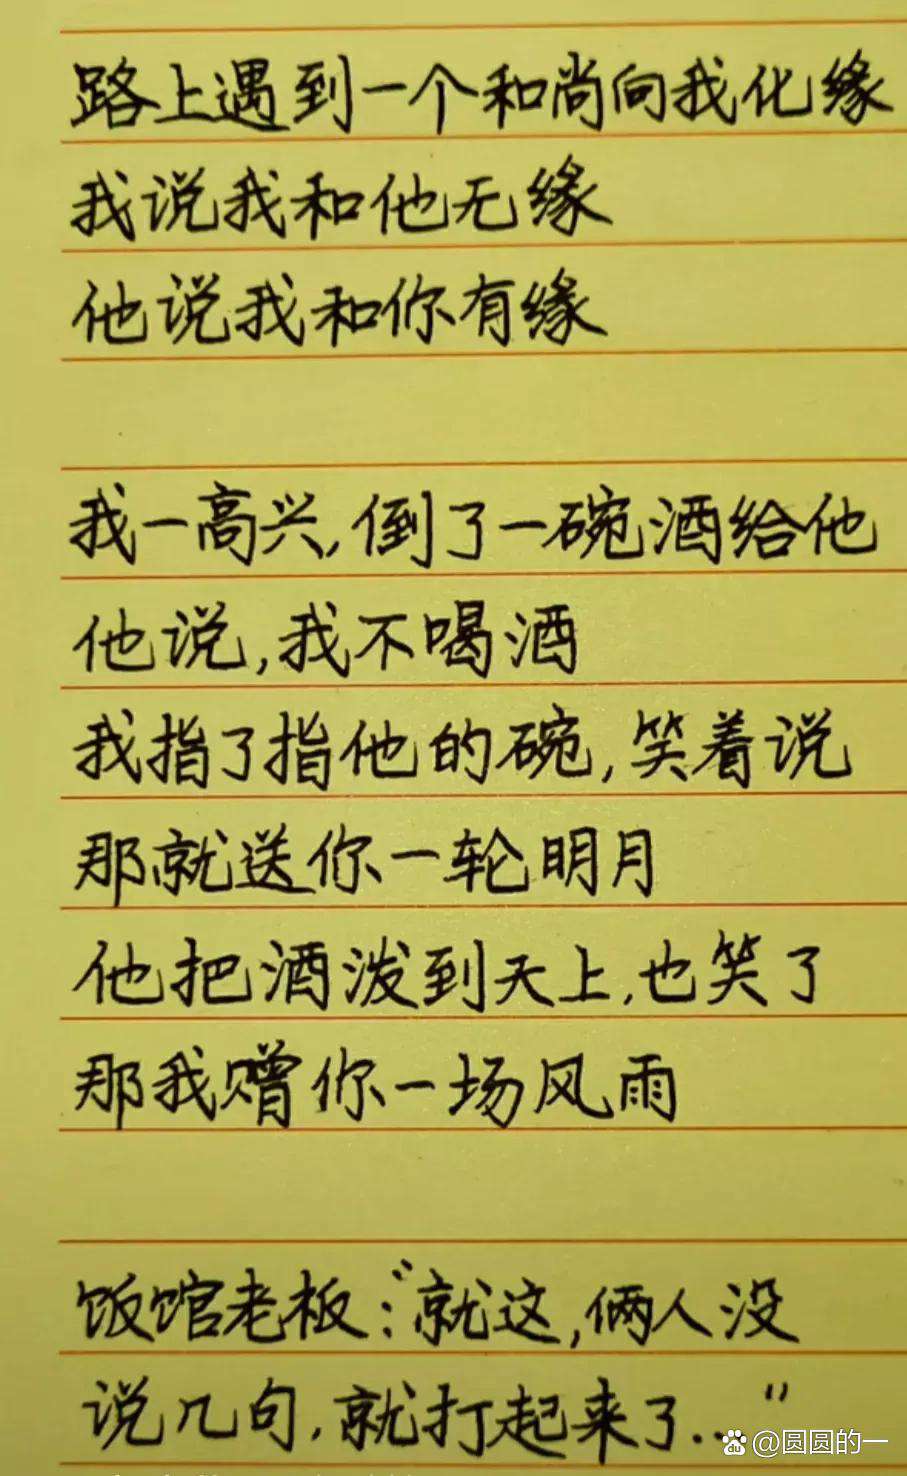 路上遇到一个和尚向我化缘
我说我和他无缘
他说我和你有缘
我一高兴,倒了一碗酒给他
他说,我不喝酒
我指了指他的碗,笑着说
那就送你一轮明月
他把酒泼到天上,也笑了
那我赠你一场风雨
饭馆老板:“就这,俩人没
说几句,就打起来了…”
@圆圆的一